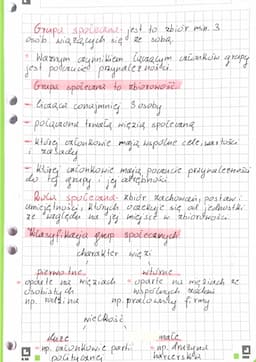 Grupa społeczna - jest to zbiór min. 3
osób wiążących się ze sobą.
• Ważnym czynnikiem łączącym członków grupy
jest poczucie przynależności.
Grupa społeczna to zbiorowość:
- licząca conajmniej 3 osoby
- połączona trwałą więzią społeczną
- której członkowie mają wspólne cele, wartości
i zasady
- której członkowie mają poczucie przynależności
do tej grupy i jej odrębności.
Rola społeczna - zbiór zachowań, postaw i
umiejętności, których oczekuje się od jednostki
ze względu na jej miejsce w zbiorowości.
Klasyfikacja grup społecznych
charakter więzi
pierwotne wtórne
• oparte na więziach • oparte na więziach ze
osobistych wspólnych
np. rodzina np. pracownicy firmy
wielkość
duże małe
• np. członkowie partii • np. drużyna
politycznej harcerska